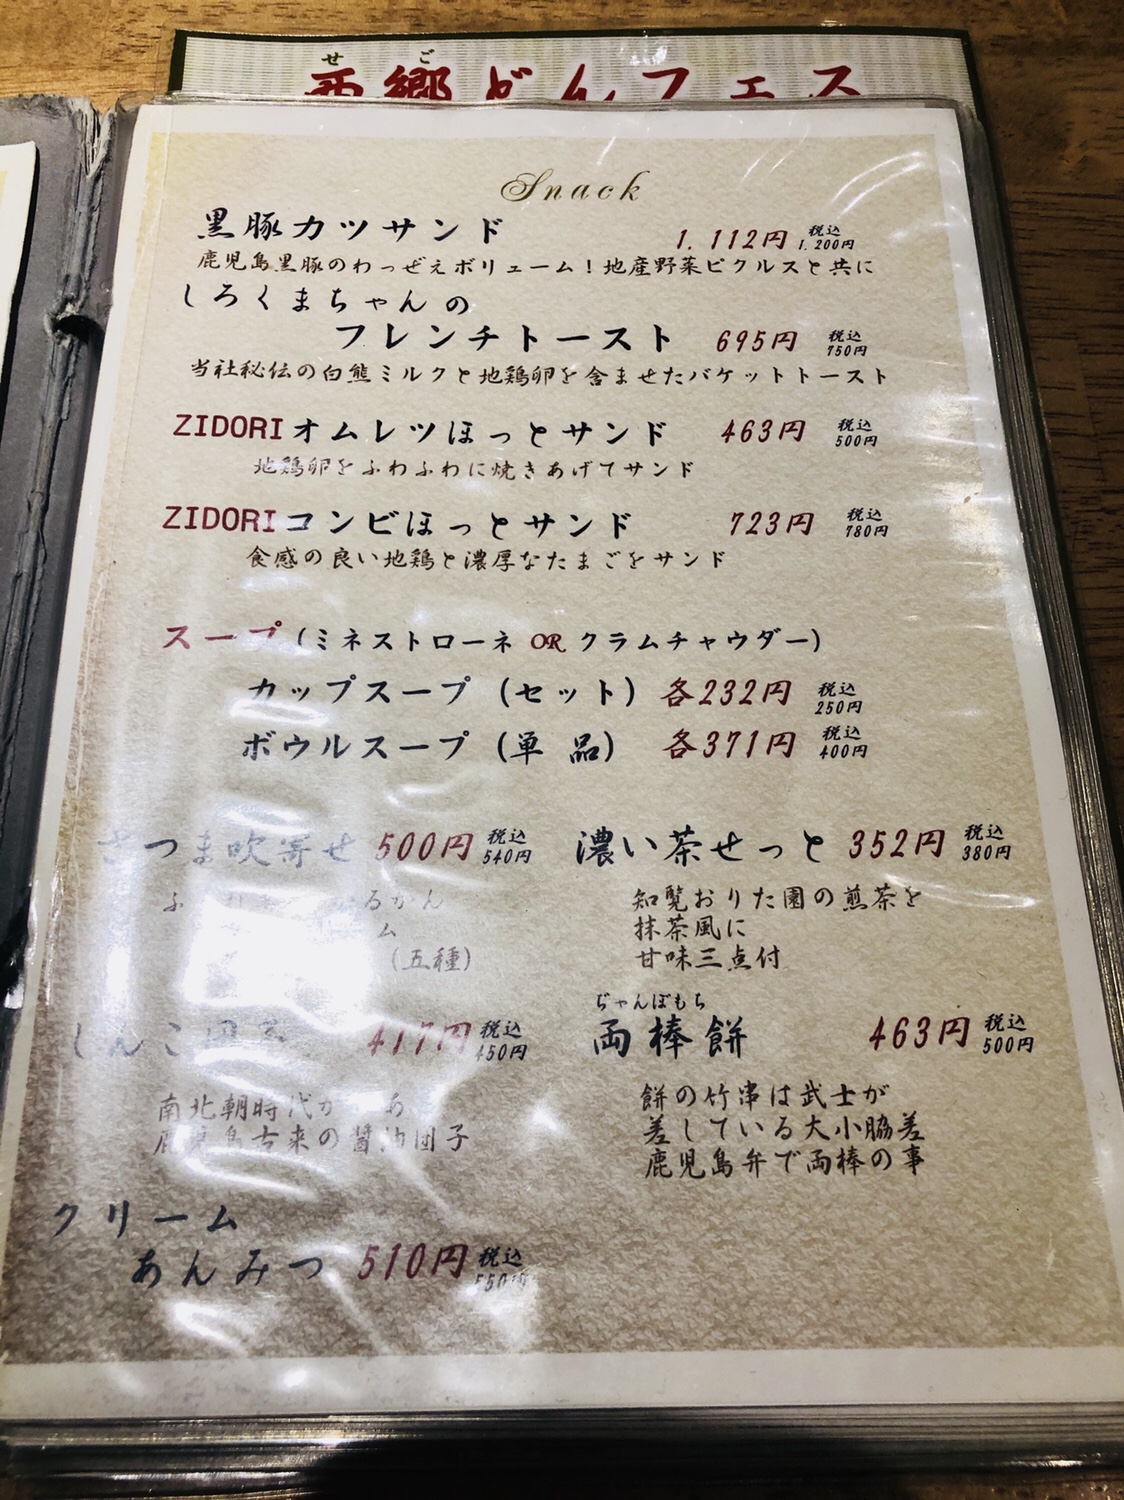 せご
西郷どんフェス
Snack
黒豚カツサンド 1,112円 税込 1,200円
鹿児島黒豚のわっぜえボリューム！地産野菜ピクルスと共に
しろくまちゃんの
フレンチトースト 695円 税込 750円
当社秘伝の白熊ミルクと地鶏卵を含ませたバケットトースト
ZIDORIオムレツほっとサンド 463円 税込 500円
地鶏卵をふわふわに焼きあげてサンド
ZIDORIコンビほっとサンド 723円 税込 780円
食感の良い地鶏と濃厚なたまごをサンド
スープ（ミネストローネ OR クラムチャウダー）
カップスープ（セット）各232円 税込 250円
ボウルスープ（単 品） 各371円 税込 400円
さつま吹寄せ 500円 税込 540円
るかん
ム
（五種）
濃い茶せっと 352円 税込 380円
知覧おりた園の煎茶を
抹茶風に
甘味三点付
しんこ団子 417円 税込 450円
南北朝時代
鹿児島古来の醤油団子
ぢゃんぼもち
両棒餅 463円 税込 500円
餅の竹串は武士が
差している大小脇差
鹿児島弁で両棒の事
クリーム
あんみつ 510円 税込 550円